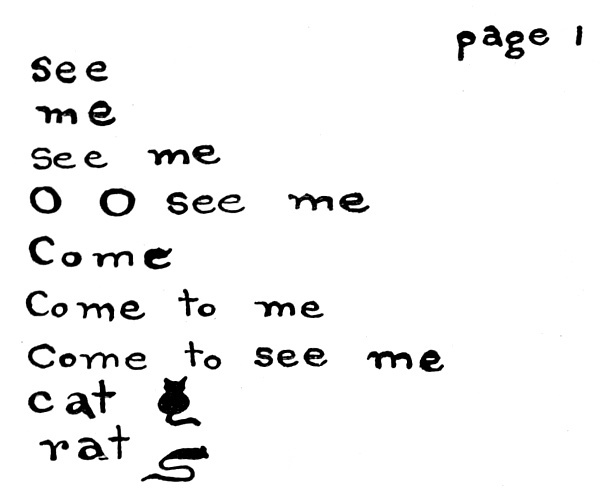 page 1
see
me
see me
O O see me
Come
Come to me
Come to see me
cat
rat